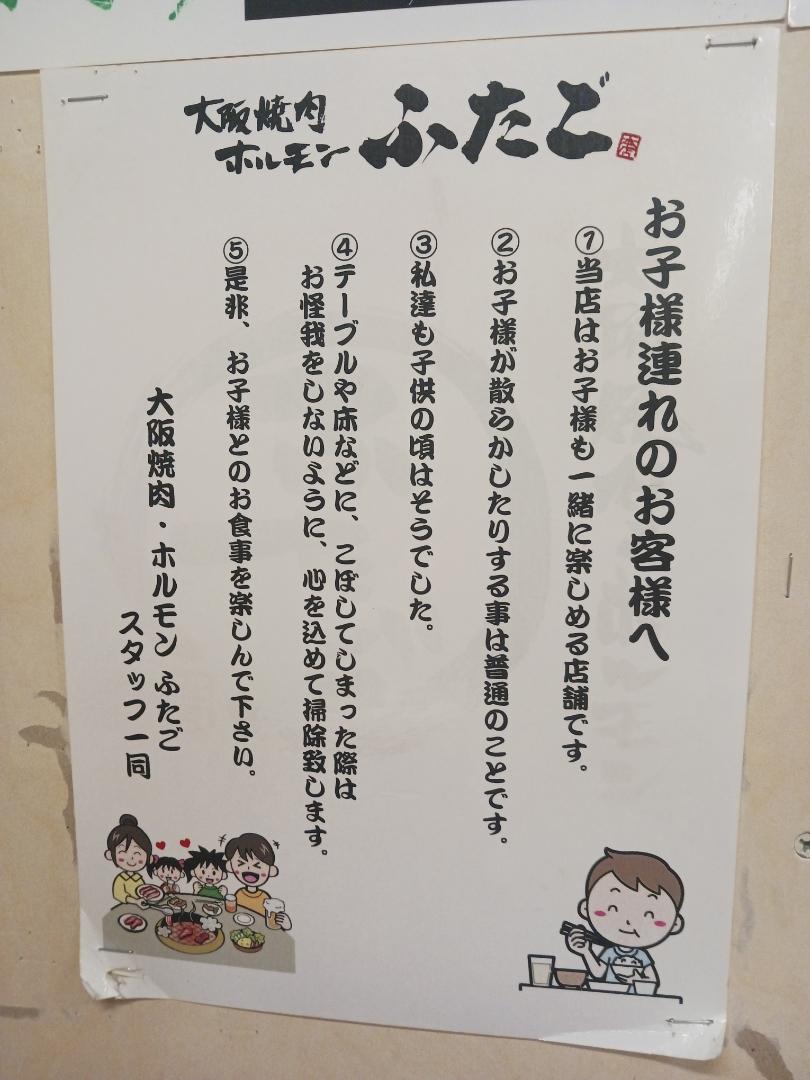 大阪焼肉
ホルモン
ふたご
お子様連れのお客様へ
①当店はお子様も一緒に楽しめる店舗です。
②お子様が散らかしたりする事は普通のことです。
③私達も子供の頃はそうでした。
④テーブルや床などに、こぼしてしまった際は
お怪我をしないように、心を込めて掃除致します。
⑤是非、お子様とのお食事を楽しんで下さい。
大阪焼肉・ホルモン ふたご
スタッフ一同